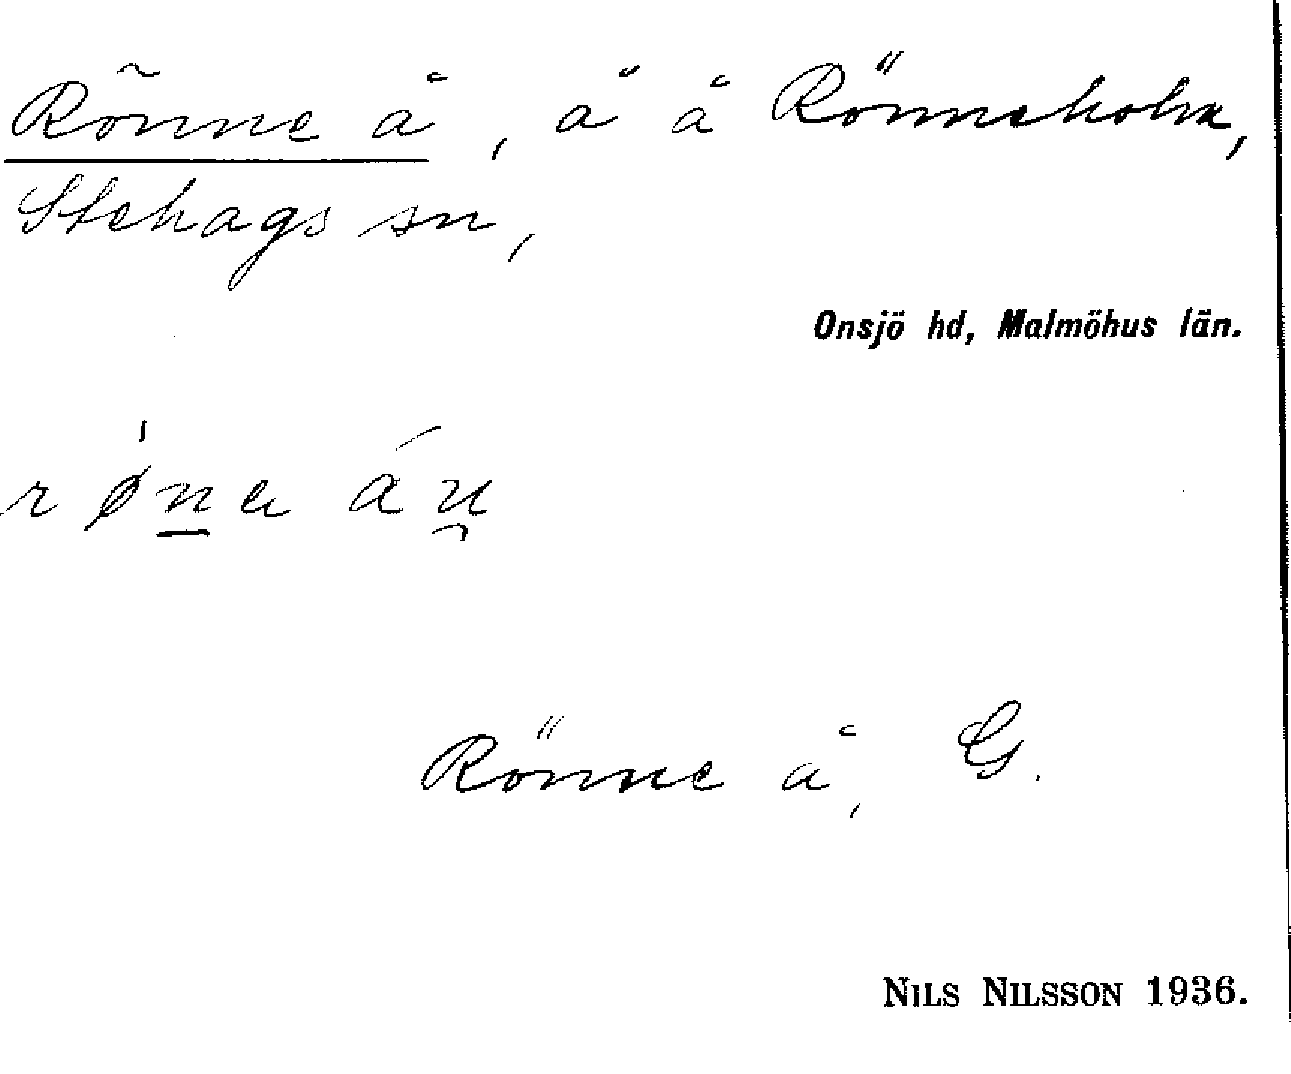 Rönne å, å å Rönneholm,
Stehags sn,
Onsjö hd, Malmöhus län.
Rönne å, G.
NILS NILSSON 1936.